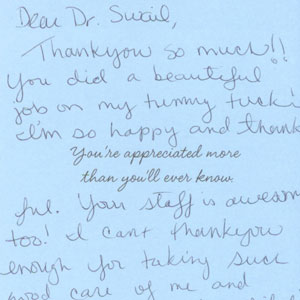 Dear Dr. Swail,
Thankyou so much!!
You did a beautiful
job on my tummy tuck!
I'm so happy and thank
You're appreciated more
than you'll ever know.
ful. Your staff is awesom
too! I cant thankyou
enough for taking such
good care of me and